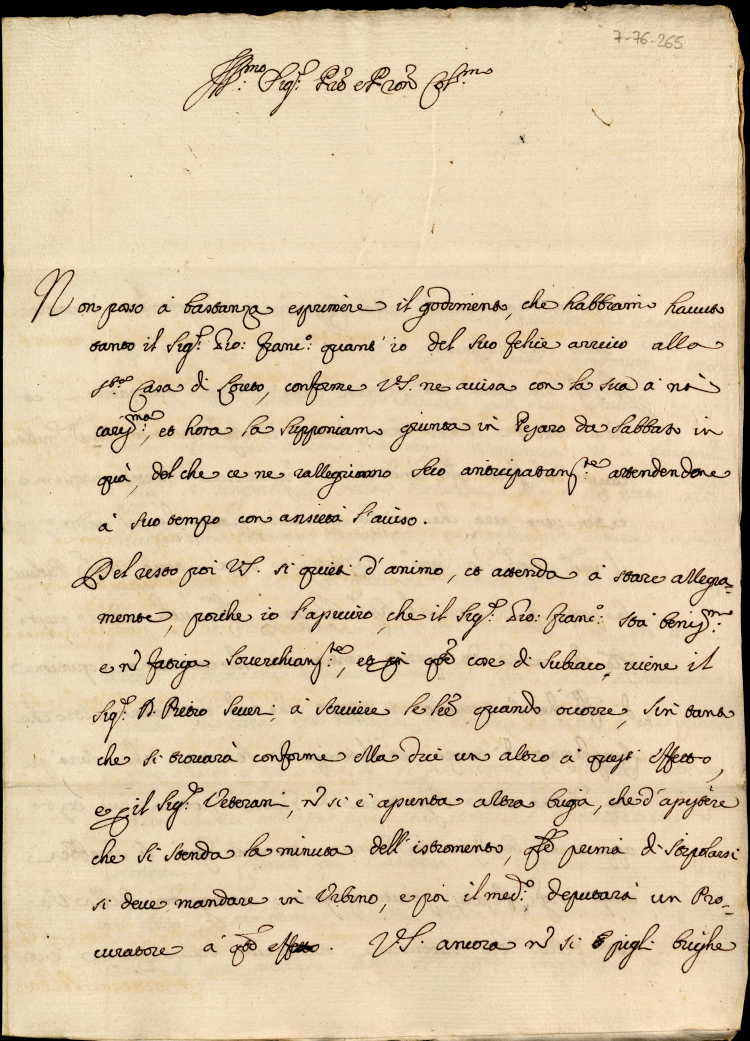 7-76-265
Ill.mo Sig.r P.re e P.ron Col.mo
Non posso à bastanza esprimere il godimento, che habbiam havuto
tanto il Sig.r Gio: Franc.o quant' io del suo felice arrivo alla
S.ta Casa di Loreto, conforme V.S. ne avisa con la sua à noi
cariss.ma, et hora la supponiamo giunta in Pesaro da Sabbato in
quà, del che ce ne rallegriamo seco anticipatam.te attendendone
à suo tempo con ansietà l'aviso.
Del resto poi V.S. si quieti d'animo, et attenda à stare allegra-
mente, perche io l'assicuro, che il Sig.r Gio: Franc.o stà beniss.mo
e nõ fatiga soverchiam.te, et p q.te cose di Subiaco, viene il
Sig.r D. Pietro Severi, à scrivere le l're quando occorre, sin tanto
che si trovarà conforme ella dice un altro à quest' effetto,
e p il Sig.r Veterani, nõ si è apunta altra briga, che d'
che si stenda la minuta dell'istromento, q.le prima di stipolarsi
si deve mandare in Urbino, e poi il med.o deputarà un Pro-
curatore à q.to effetto. V.S. ancora nõ si pigli brighe